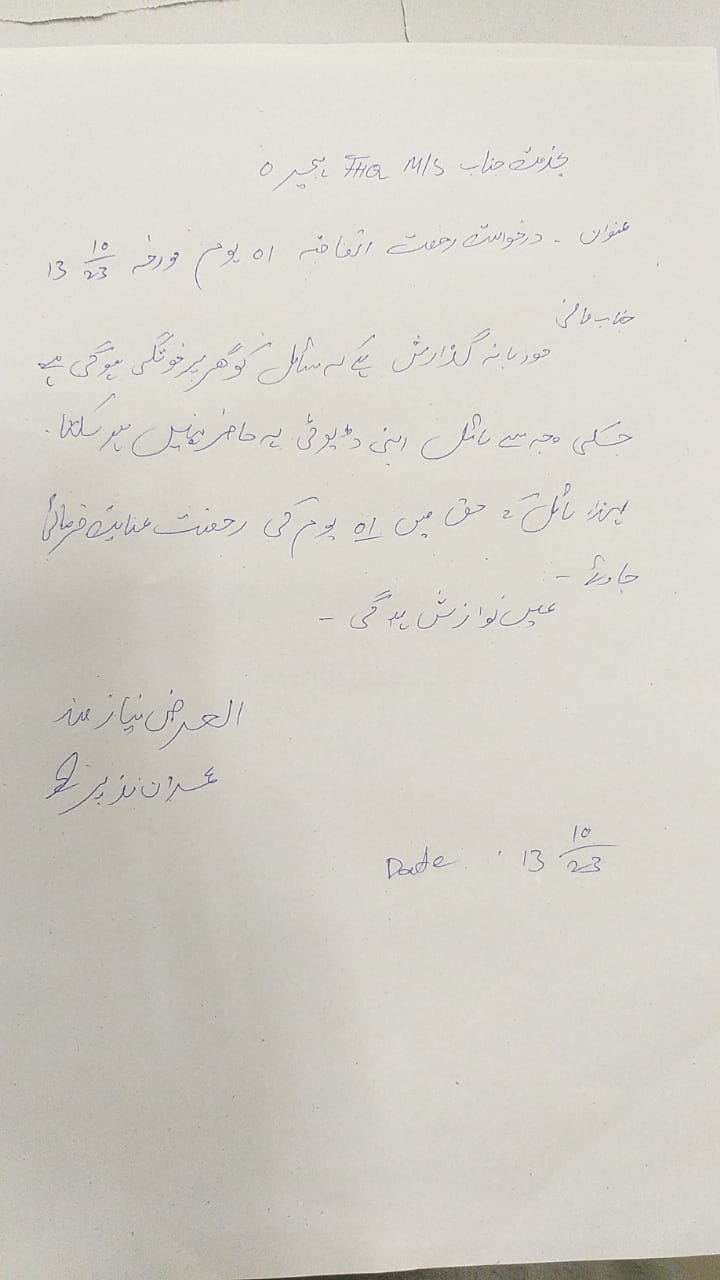 بخدمت جناب M/S THQ بھیرہ
عنوان ۔ درخواست رخصت اتفاقیہ 01 یوم مورخہ 13 10/23
جناب عالی
مودبانہ گذارش ہے کہ سائل کو گھر پر فوتگی ہو گی ہے
جسکی وجہ سے سائل اپنی ڈیوٹی پہ حاضر نہیں ہو سکتا ۔
لہذا سائل کے حق میں 01 یوم کی رخصت عنایت فرمائی
جاوئے ۔
عین نوازش ہو گی ۔
العرض نیاز مند
نذیر
Date : 13 10/23